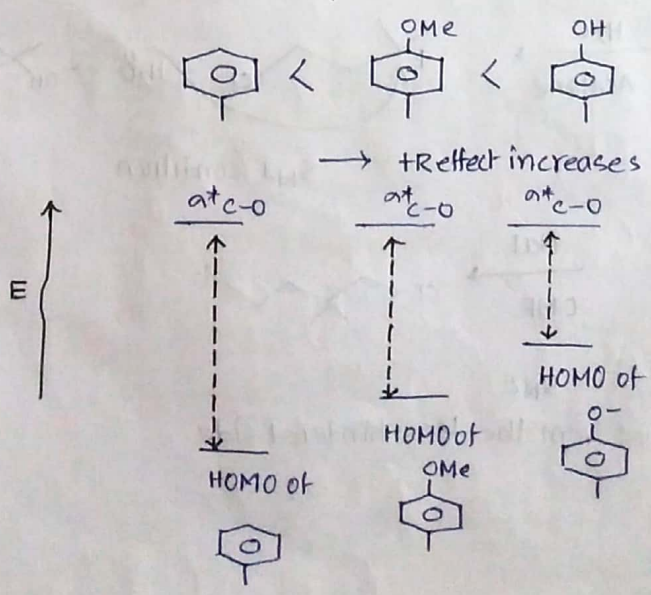 OMe OH
< <
→ +R effect increases
a* C-O a* C-O a* C-O
E
HOMO of
HOMO of
HOMO of
O-
OMe